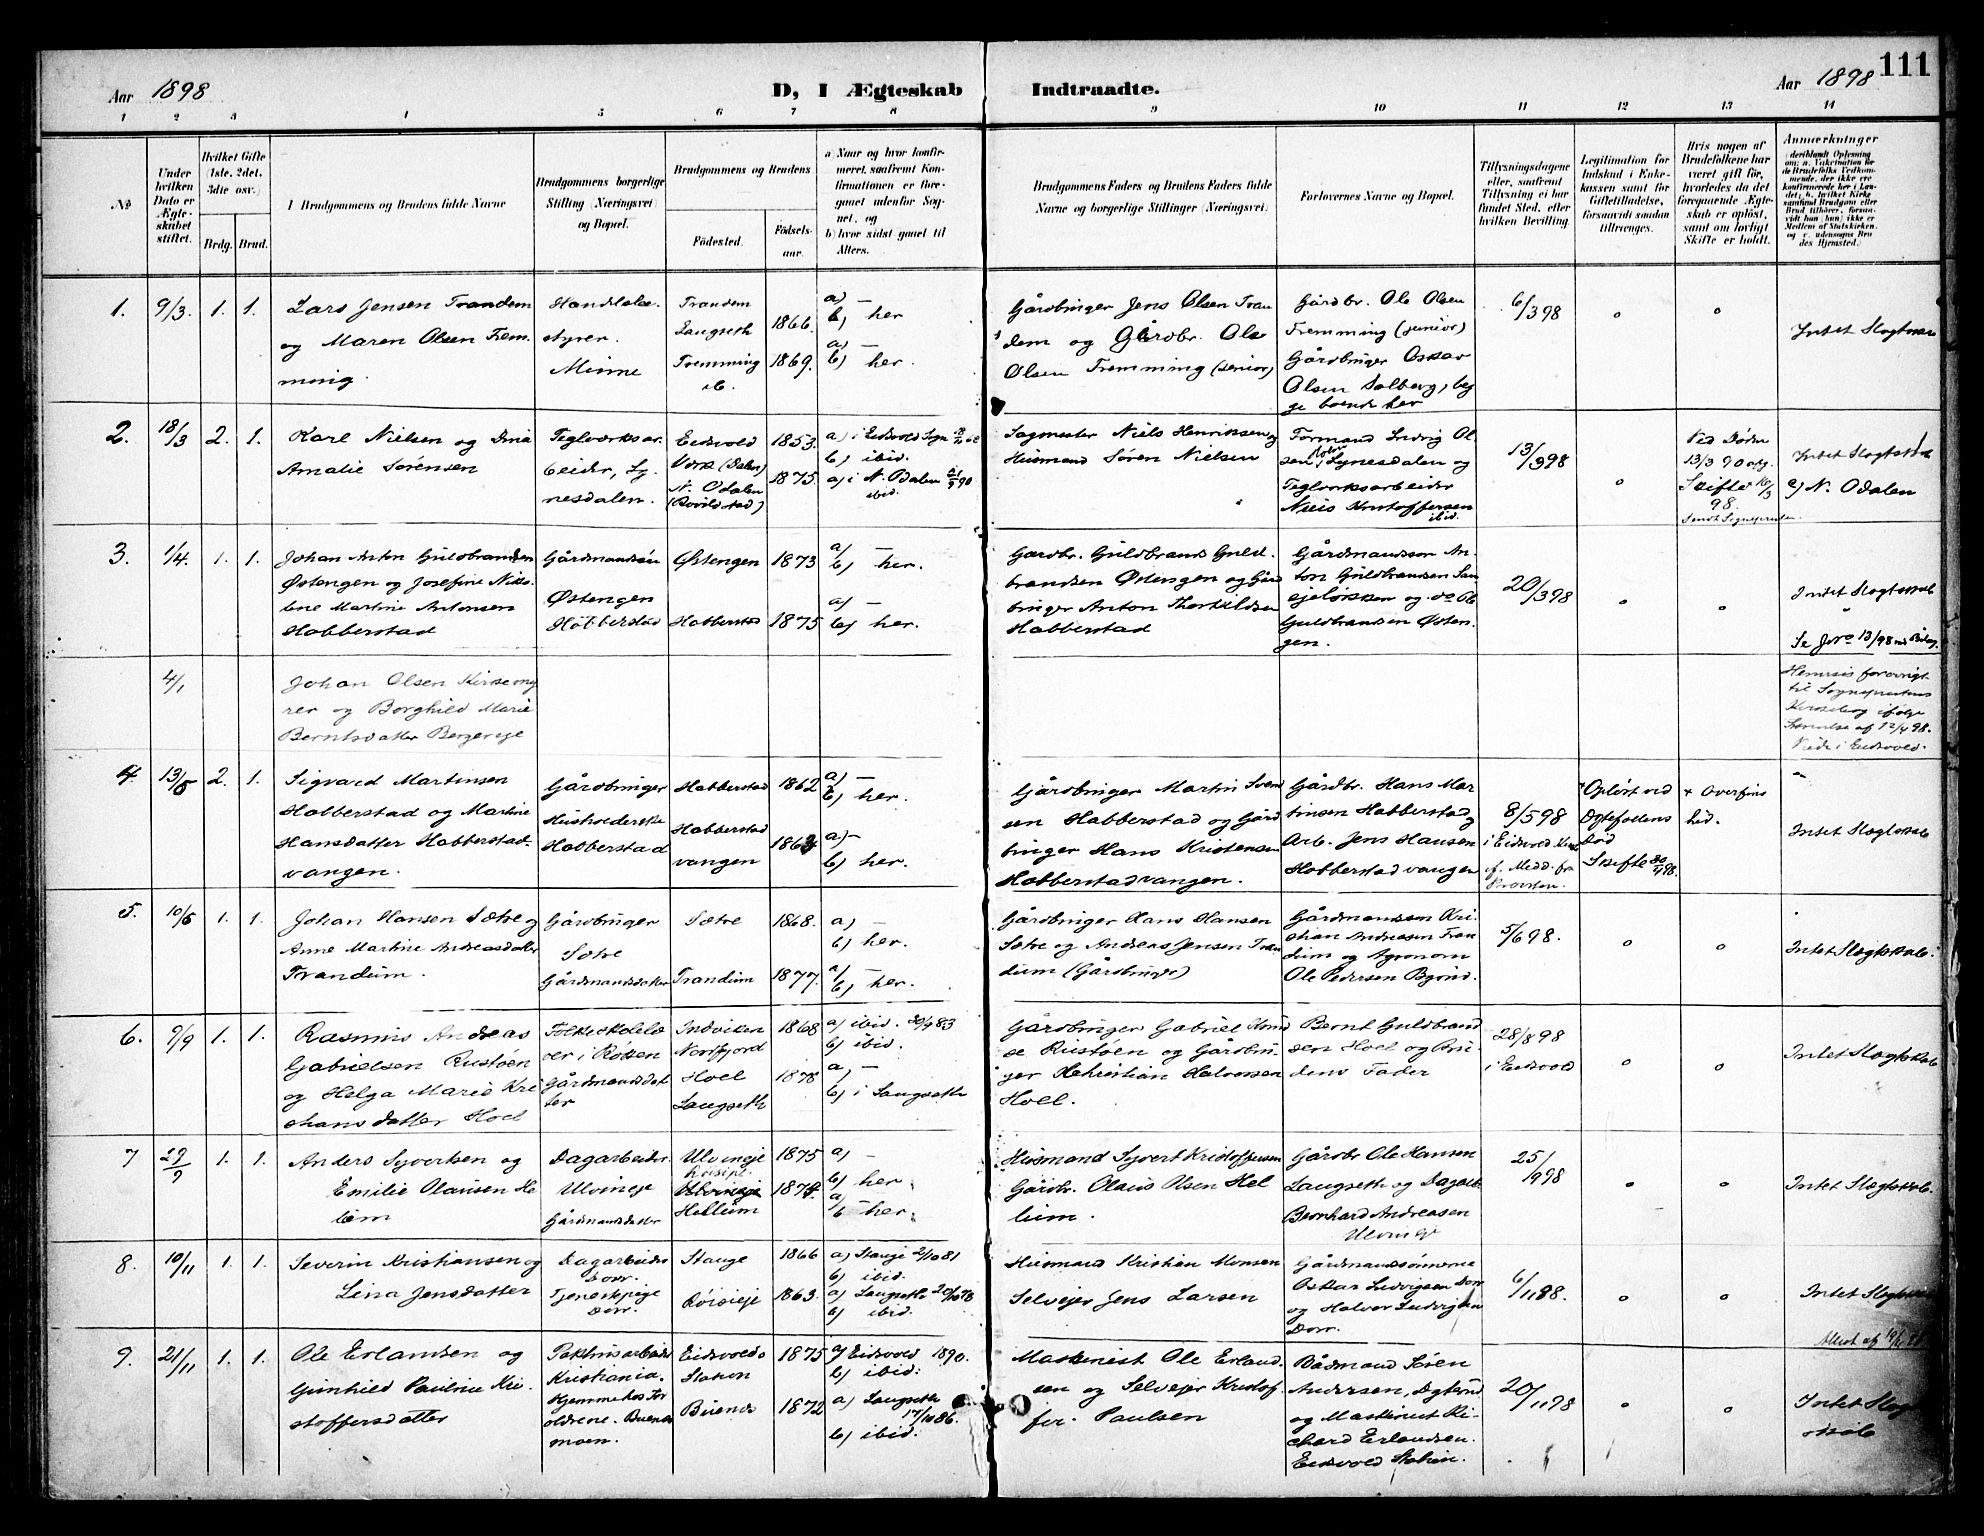 111
Aar 1898 D, I Ægteskab Indtraadte. Aar 1898
1 2 3 4 5 6 7 8 9 10 11 12 13 14
№
Under hvilken Dato er Ægteskabet stiftet.
Hvilket Gifte (1ste, 2det, 3die osv.)
Brdg. Brud.
Brudgommens og Brudens fulde Navne
Brudgommens borgerlige Stilling (Næringsvei) og Bopæl.
Brudgommens og Brudens
Fødested.
Fødselsaar.
a Naar og hvor konfirmeret, saafremt Konfirmationen er foregaaet udenfor Sognet, og
b) hvor sidst gaaet til Alters.
Brudgommens Faders og Brudens Faders fulde Navne og borgerlige Stillinger (Næringsvei)
Forlovernes Navne og Bopæl.
Tillysningsdagene eller, saafremt Tillysning ei har fundet Sted, efter hvilken Bevilling.
Legitimation for Indskud i Enkekassen samt for Giftetilladelse, forsaavidt saadan tiltrænges.
Hvis nogen af Brudefolkene har været gift før, hvorledes da det foregaaende Ægteskab er opløst, samt om lovligt Skifte er holdt.
Anmerkninger
1. 9/3. 1. 1.
Lars Jensen Trandem
og Maren Olsen Frem-
ming.
Handels-
styrer.
Minne
Trandem
Langseth
Fremming
ib.
1866.
1869.
a) —
b) her
a) —
b) her.
Gårdbruger Jens Olsen Tran
dem og Gårdbr. Ole
Olsen Fremming (senior)
Gårdbr. Ole Olsen
Fremming (junior)
Gårdbruger Oskar
Olsen Solberg, beg
ge boende her
6/398
o
o
Intet Slægtskab
2. 18/3 2. 1.
Karl Nielsen og Dina
Amalie Sørensen
Teglværksar-
beider, Ly-
nesdalen.
Eidsvold
Værk (Dalen)
N. Odalen
1853.
1875.
a) i Eidsvold Sogn
b) ibid.
a) i N. Odalen 90
ibid.
Sagmester Niels Henriksen og
Husmand Søren Nielsen
Formand Ludvig Ol
sen Lynesdalen og
Teglværksarbeider
Niels Kristoffersen
ibid.
13/398
o
Ved Døden
13/3 90
Skifte 16/3
98.
Sendt Sognepresten.
Intet Slægtskab
a) N. Odalen
3. 1/4. 1. 1.
Johan Anton Guldbrandsen
Østengen og Josefine Niko-
line Martine Antonsen
Habberstad
Gårdmandssøn
Østengen
Habberstad
Østengen
Habberstad
1873
1875
a) —
b) her.
a) —
b) her.
Gårdbr. Guldbrand Guld
brandsen Østengen og Gård
bruger Anton Thorkildsen
Habberstad
Gårdmandssøn An-
ton Guldbrandsen
og do Ole
Guldbrandsen Østen-
gen.
20/398
o
o
Intet Slægtskab
Se Jno 13/98 med Bilag.
4/1
Johan Olsen Kirkemy-
rer og Borghild Marie
Berntsdatter Bergereje
Henvises forøvrigt
til Sognepresten
Kirkebog ifølge
Skrivelse af 12/4 98.
Viede i Eidsvold.
4. 13/5 2. 1.
Sigvard Martinsen
Habberstad og Martine
Hansdatter Habberstad-
vangen.
Gårdbruger
Husholderske
Habberstad
Habberstad
Habberstad
vangen
1862
1864
a) —
b) her.
a) —
b) her.
Gårdbruger Martin Svend
sen Habberstad og Gård
bruger Hans Kristensen
Habberstadvangen.
Gårdbr. Hans Mar
tinsen Habberstad og
Arb. Jens Hansen
Habberstadvangen
8/598
i Eidsvold Kirke
f. Medd. fra
Provsten.
Opløst ved
Ægtefællens
Død
Skifte 30/4 98.
Intet Slægtskab
5. 10/6 1. 1.
Johan Hansen Sætre og
Anne Martine Andreasdatter
Trandum.
Gårdbruger
Sætre
Gårdmandsdatter
Sætre
Trandum
1868.
1877.
a) —
b) her.
a) —
b) her.
Gårdbruger Hans Hansen
Sætre og Andreas Jensen Tran
dum (Gårdbruger)
Gårdmandssøn Kri-
stian Andreasen Tran
dum og Agronom
Ole Pedersen Bgrind.
5/698.
o
o
Intet Slægtskab.
6. 9/9 1. 1.
Rasmus Andreas
Gabrielsen Rustøen
og Helga Marie Kri
stiansdatter Hoel
Folkeskolelæ
rer i Røken
Gårdmandsdat
ter
Indviken
Nordfjord
Hoel
Langseth
1868
1878
a) ibid. 30/9 83
b) ibid.
a) —
b) i Langseth
Gårdbruger Gabriel
Rustøen og Gårdbru-
ger Kristian Halvorsen
Hoel.
Bernt Guldbrand
sen Hoel og Bru-
dens Fader
28/898
i Eidsvold
o
o
Intet Slægtskab
7 29/9 1. 1.
Anders Syvertsen og
Emilie Olausen He
lum
Dagarbeider
Ulvineje
Gårdmandsdatter
Ulvineje
Hellum
1875
1874.
a) —
b) her
a)
b) her.
Husmand Syvert Kristoffersen
Gårdbr. Olaus Olsen Hel
lum.
Gårdbr Ole Hansen
Langseth og Dagarb.
Bernhard Andreasen
Ulvineje
25/998
o
o
Intet Slægtskab.
8. 10/11 1. 1.
Severin Kristiansen og
Lina Jensdatter
Dagarbeider
Dorr.
Tjenestepige
Dorr.
Stange
Röisieje
1866
1863.
a) Stange 2/10 81
b) ibid.
a) Langseth 20/10 78
b) ibid.
Husmand Kristian Monsen
Selvejer Jens Larsen
Gårdmandssønnerne
Oskar Ludvigsen Dorr
og Halvor Ludvigsen
Dorr.
6/1198.
o
o
Intet Slægtskab
9. 21/11 1. 1.
Ole Erlandsen og
Gunhild Pauline Kri-
stoffersdatter
Fabriksarbeider
Kristiania.
Hjemme hos For
ældrene. Buends
moen.
Eidsvolds
Station
Buends
1875
1872
a) Eidsvold 1890.
b) ibid.
a) Langseth
17/10 86.
b) ibid.
Maskinist Ole Erland-
sen og Selvejer Kristof-
fer Paulsen
Rådmand Søren
Andersen,
og Maskinist Ri-
chard Erlandsen.
Eidsvold Station.
20/1198
o
o
Intet Slægt
skab